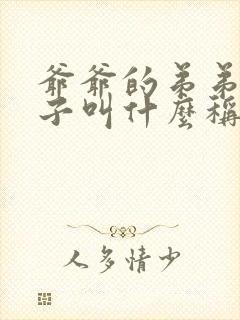 爺爺的弟弟
子叫什麼稱
人多情少